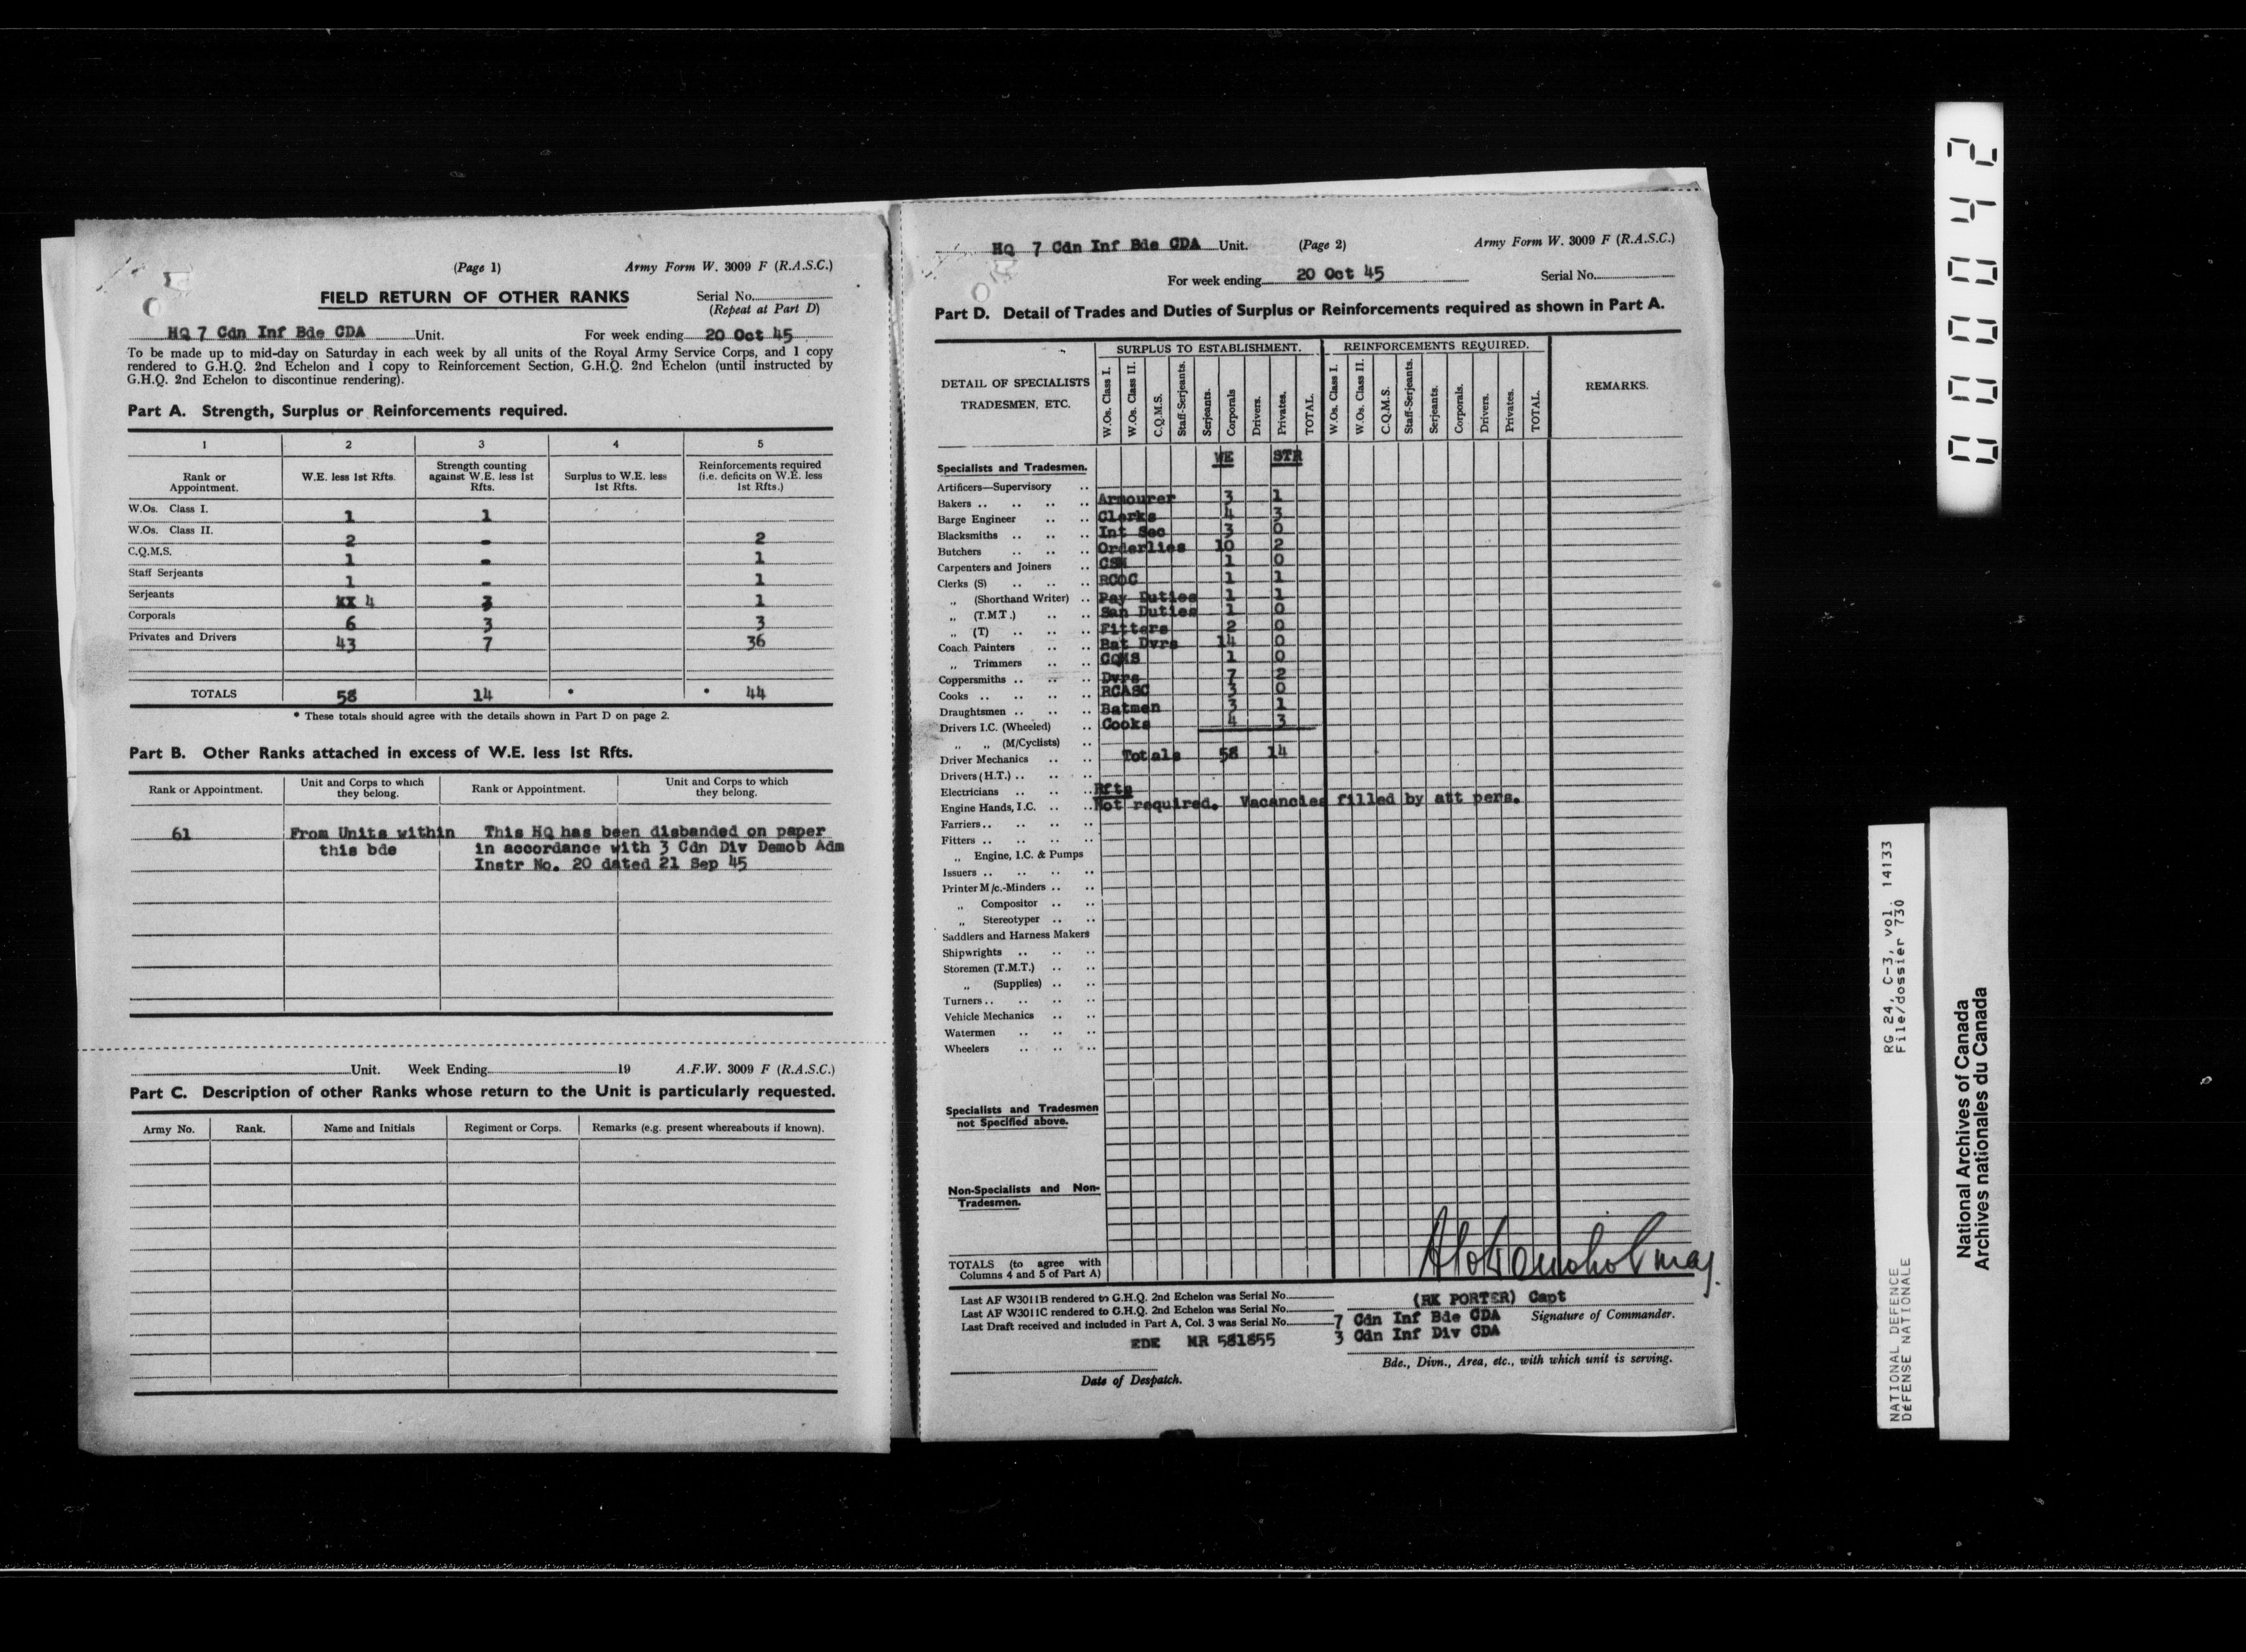 (Page 1) Army Form W. 3009 F (R.A.S.C.)
FIELD RETURN OF OTHER RANKS
Serial No.
(Repeat at Part D)
HQ 7 Cdn Inf Bde CDA Unit. For week ending 20 Oct 45
To be made up to mid-day on Saturday in each week by all units of the Royal Army Service Corps, and 1 copy
rendered to G.H.Q. 2nd Echelon and 1 copy to Reinforcement Section, G.H.Q. 2nd Echelon (until instructed by
G.H.Q. 2nd Echelon to discontinue rendering).
Part A. Strength, Surplus or Reinforcements required.
1 2 3 4 5
Rank or Appointment. W.E. less 1st Rfts. Strength counting against W.E. less 1st Rfts. Surplus to W.E. less 1st Rfts. Reinforcements required (i.e. deficits on W.E. less 1st Rfts.)
W.Os. Class I. 1 1
W.Os. Class II. 2 - 2
C.Q.M.S. 1 - 1
Staff Serjeants 1 - 1
Serjeants xx 4 3 1
Corporals 6 3 3
Privates and Drivers 43 7 36
TOTALS 58 14 * * 44
* These totals should agree with the details shown in Part D on page 2.
Part B. Other Ranks attached in excess of W.E. less 1st Rfts.
Rank or Appointment. Unit and Corps to which they belong. Rank or Appointment. Unit and Corps to which they belong.
61 From Units within This HQ has been disbanded on paper
this bde in accordance with 3 Cdn Div Demob Adm
Instr No. 20 dated 21 Sep 45
Unit. Week Ending 19 A.F.W. 3009 F (R.A.S.C.)
Part C. Description of other Ranks whose return to the Unit is particularly requested.
Army No. Rank. Name and Initials Regiment or Corps. Remarks (e.g. present whereabouts if known).
HQ 7 Cdn Inf Bde CDA Unit. (Page 2) Army Form W. 3009 F (R.A.S.C.)
For week ending 20 Oct 45 Serial No.
Part D. Detail of Trades and Duties of Surplus or Reinforcements required as shown in Part A.
DETAIL OF SPECIALISTS TRADESMEN, ETC. SURPLUS TO ESTABLISHMENT. REINFORCEMENTS REQUIRED. REMARKS.
W.Os. Class I. W.Os. Class II. C.Q.M.S. Staff-Serjeants. Serjeants. Corporals Drivers. Privates. TOTAL. W.Os. Class I. W.Os. Class II. C.Q.M.S. Staff-Serjeants. Serjeants. Corporals. Drivers. Privates. TOTAL.
Specialists and Tradesmen. WE STR
Artificers—Supervisory
Bakers Armourer 3 1
Barge Engineer Clerks 4 3
Blacksmiths Int Sec 3 0
Butchers Orderlies 10 2
Carpenters and Joiners CSM 1 0
Clerks (S) RCOC 1 1
„ (Shorthand Writer) Pay Duties 1 1
„ (T.M.T.) San Duties 1 0
„ (T) Fitters 2 0
Coach Painters Bat Dvrs 14 0
„ Trimmers CQMS 1 0
Coppersmiths Dvrs 7 2
Cooks RCASC 3 0
Draughtsmen Batmen 3 1
Drivers I.C. (Wheeled) Cooks 4 3
„ „ (M/Cyclists)
Driver Mechanics Totals 58 14
Drivers (H.T.)
Electricians Rfts
Engine Hands, I.C. Not required. Vacancies filled by att pers.
Farriers
Fitters
„ Engine, I.C. & Pumps
Issuers
Printer M/c.-Minders
„ Compositor
„ Stereotyper
Saddlers and Harness Makers
Shipwrights
Storemen (T.M.T.)
„ (Supplies)
Turners
Vehicle Mechanics
Watermen
Wheelers
Specialists and Tradesmen
not Specified above.
Non-Specialists and Non-
Tradesmen.
TOTALS (to agree with
Columns 4 and 5 of Part A)
Maj.
Last AF W3011B rendered to G.H.Q. 2nd Echelon was Serial No. (RK PORTER) Capt
Last AF W3011C rendered to G.H.Q. 2nd Echelon was Serial No. Signature of Commander.
Last Draft received and included in Part A, Col. 3 was Serial No. 7 Cdn Inf Bde CDA
EDE MR 581855 3 Cdn Inf Div CDA
Bde., Divn., Area, etc., with which unit is serving.
Date of Despatch.
000042
RG 24, C-3, vol. 14133
File/dossier 730
NATIONAL DEFENCE
DÉFENSE NATIONALE
National Archives of Canada
Archives nationales du Canada